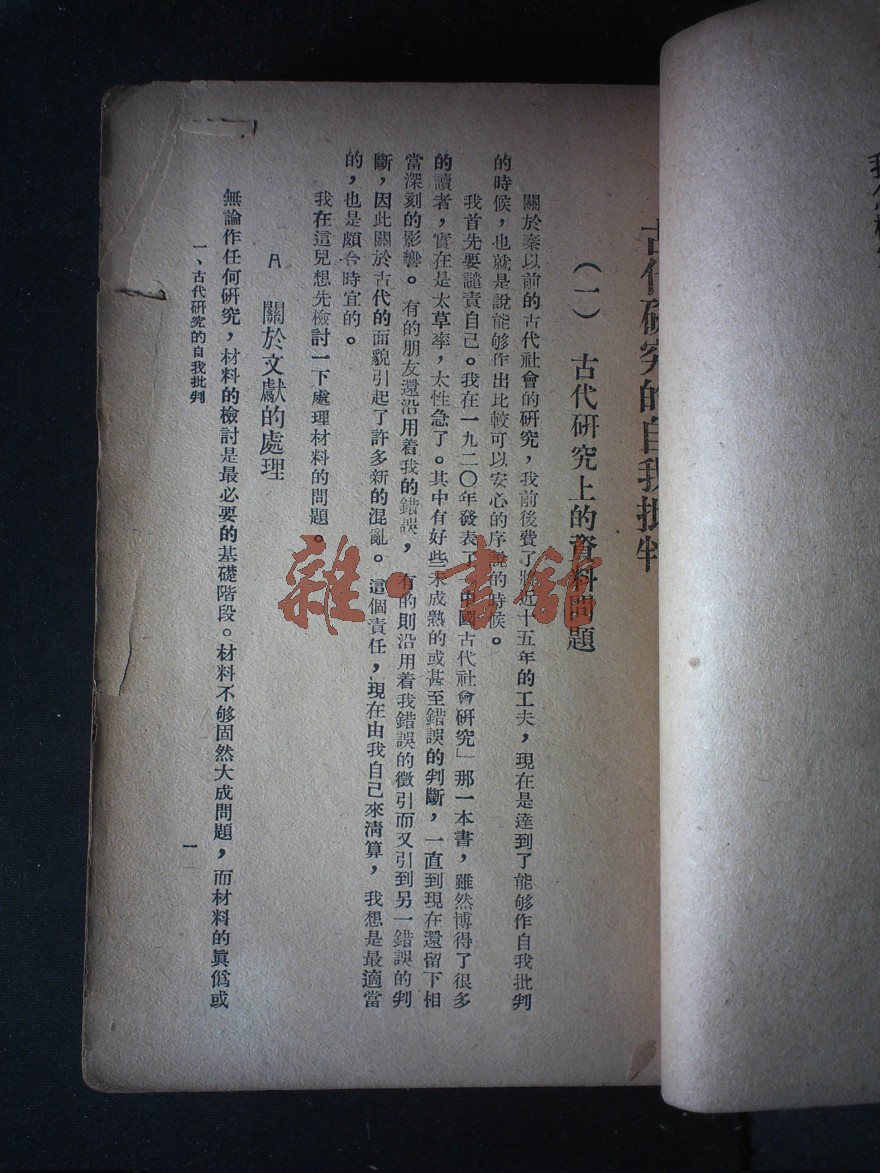 古代研究的自我批判
(一) 古代研究上的資料問題
關於秦以前的古代社會的研究,我前後費了將近十五年的工夫,現在是達到了能够作自我批判
的時候,也就是說能够作出比較可以安心的序說的時候。
我首先要譴責自己。我在一九二〇年發表了「中國古代社會研究」那一本書,雖然博得了很多
的讀者,實在是太草率,太性急了。其中有好些未成熟的或甚至錯誤的判斷,一直到現在還留下相
當深刻的影響。有的朋友還沿用着我的錯誤,有的則沿用着我錯誤的徵引而又引到另一錯誤的判
斷,因此關於古代的面貌引起了許多新的混亂。這個責任,現在由我自己來清算,我想是最適當
的,也是頗合時宜的。
我在這兒想先檢討一下處理材料的問題。
A 關於文獻的處理
無論作任何研究,材料的檢討是最必要的基礎階段。材料不够固然大成問題,而材料的眞僞或
一、古代研究的自我批判
一
雜·書館